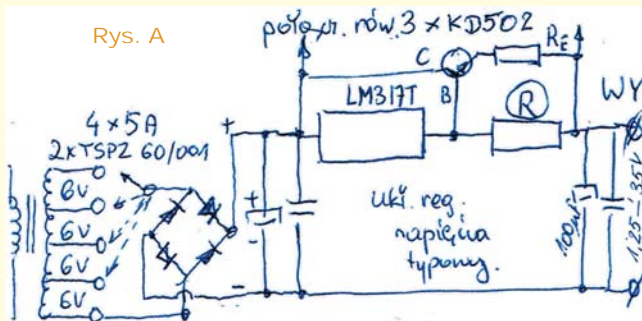 Rys. A
połącz. rów. 3 x KD502
C
RE
B
LM317T
R
WY
4 x 5A
2xTSPZ 60/001
+
+
-
6V
6V
6V
6V
-
ukł. reg.
napięcia
typowy.
100µF
1,25-35V